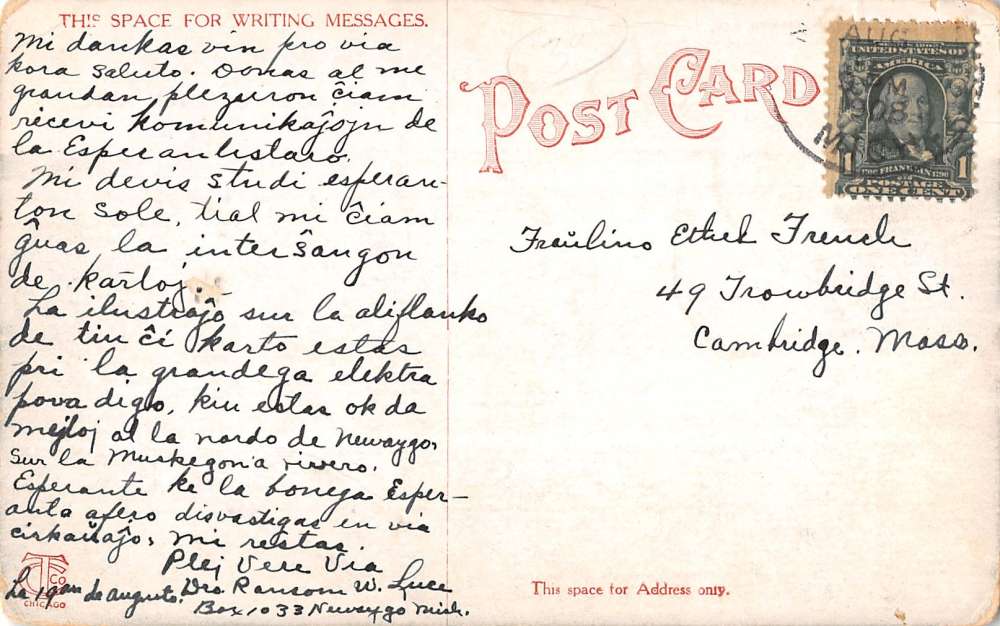 THIS SPACE FOR WRITING MESSAGES.
Mi dankas vin pro via
kora saluto. Donas al me
grandan plezuron ĉiam
ricevi komunikaĵojn de
la Esperantistaro.
Mi devis studi esperan-
ton sole, tial mi ĉiam
ĝuas la interŝangon
de kartoj.
La ilustraĵo sur la aliflanko
de tiu ĉi karto estas
pri la grandega elektra
povadigo, kiu estas ok da
mejloj al la nordo de Newaygo,
sur la Muskegon'a rivero.
Esperante ke la bonega Esper-
anta afero disvastigas en via
cirkaŭaĵo, mi restas.
Plej Vere Via
La 19an de augusto. Dro Ransom W. Luce
Box 1033 Newaygo Mich.
CT CO
CHICAGO
POST CARD
AUG
M
08
MICH
SERIES 1902
UNITED STATES OF
AMERICA
1706 FRANKLIN 1790
POSTAGE
1 ONE CENT 1
Fraŭlino Ethel French
49 Trowbridge St.
Cambridge. Mass.
This space for Address only.